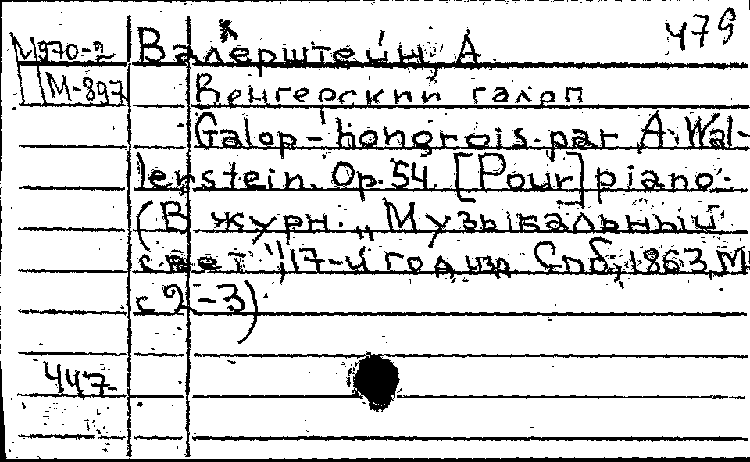 479
М970-2 Валерштейн, А
ПМ-897 Венгерский галоп
Galop-hongrois par A. Wal-
lerstein. Op. 54. [Pour] piano.-
(В журн. „Музыкальный
свет", 17-й год изд. Спб, 1863, №
с 2-3)
447